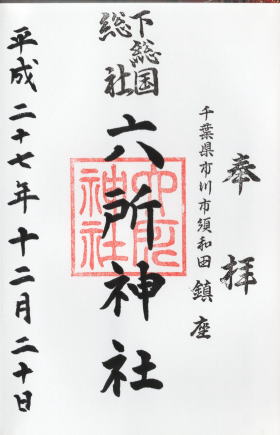 奉拝
千葉県市川市須和田鎮座
下総国
総社
六所神社
六所
神社
平成二十七年十二月二十日